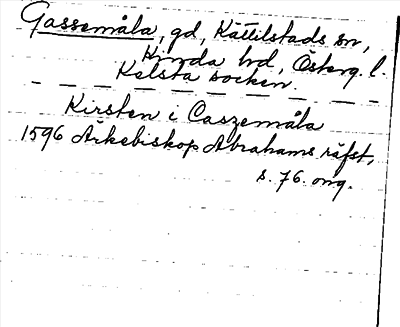 Gassemåla, gd, Kättilstads sn,
Kinda hd, Österg. l.
Kelsta socken.
Kirsten i Caszemåla
1596 Ärkebiskop Abrahams räfst,
s. 76. omg.